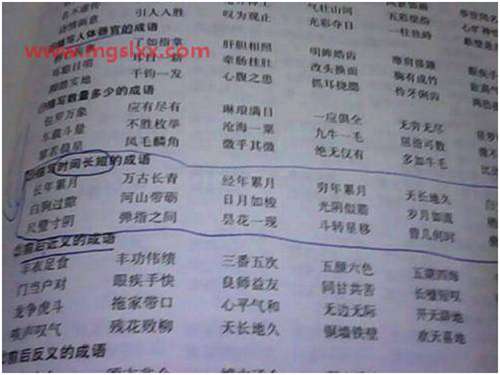 引人入胜 叹为观止 气壮山河 五彩缤纷
www.mgslxx.com
光彩夺目
描写人体器官的成语
了如指掌 肝胆相照 明眸皓齿
耳聪目明 牵肠挂肚 改头换面 胸有成竹
脚踏实地 千钧一发 心腹之患 抓耳挠腮 伶牙俐齿
描写数量多少的成语
包罗万象 应有尽有 琳琅满目 一应俱全 无穷无尽
车载斗量 不胜枚举 沧海一粟 九牛一毛 屈指可数
寥若晨星 凤毛麟角 微乎其微 绝无仅有 多如牛毛
描写时间长短的成语
长年累月 万古长青 经年累月 穷年累月 天长地久
白驹过隙 河山带砺 日月如梭 光阴似箭 岁月如流
尺璧寸阴 弹指之间 昙花一现 斗转星移 曾几何时
前后近义的成语
丰衣足食 丰功伟绩 三番五次 五颜六色 五湖四海
门当户对 眼疾手快 良师益友 同甘共苦 长吁短叹
龙争虎斗 拖家带口 心平气和 无边无际 开天辟地
唉声叹气 残花败柳 天长地久 铜墙铁壁 欢天喜地
前后反义的成语